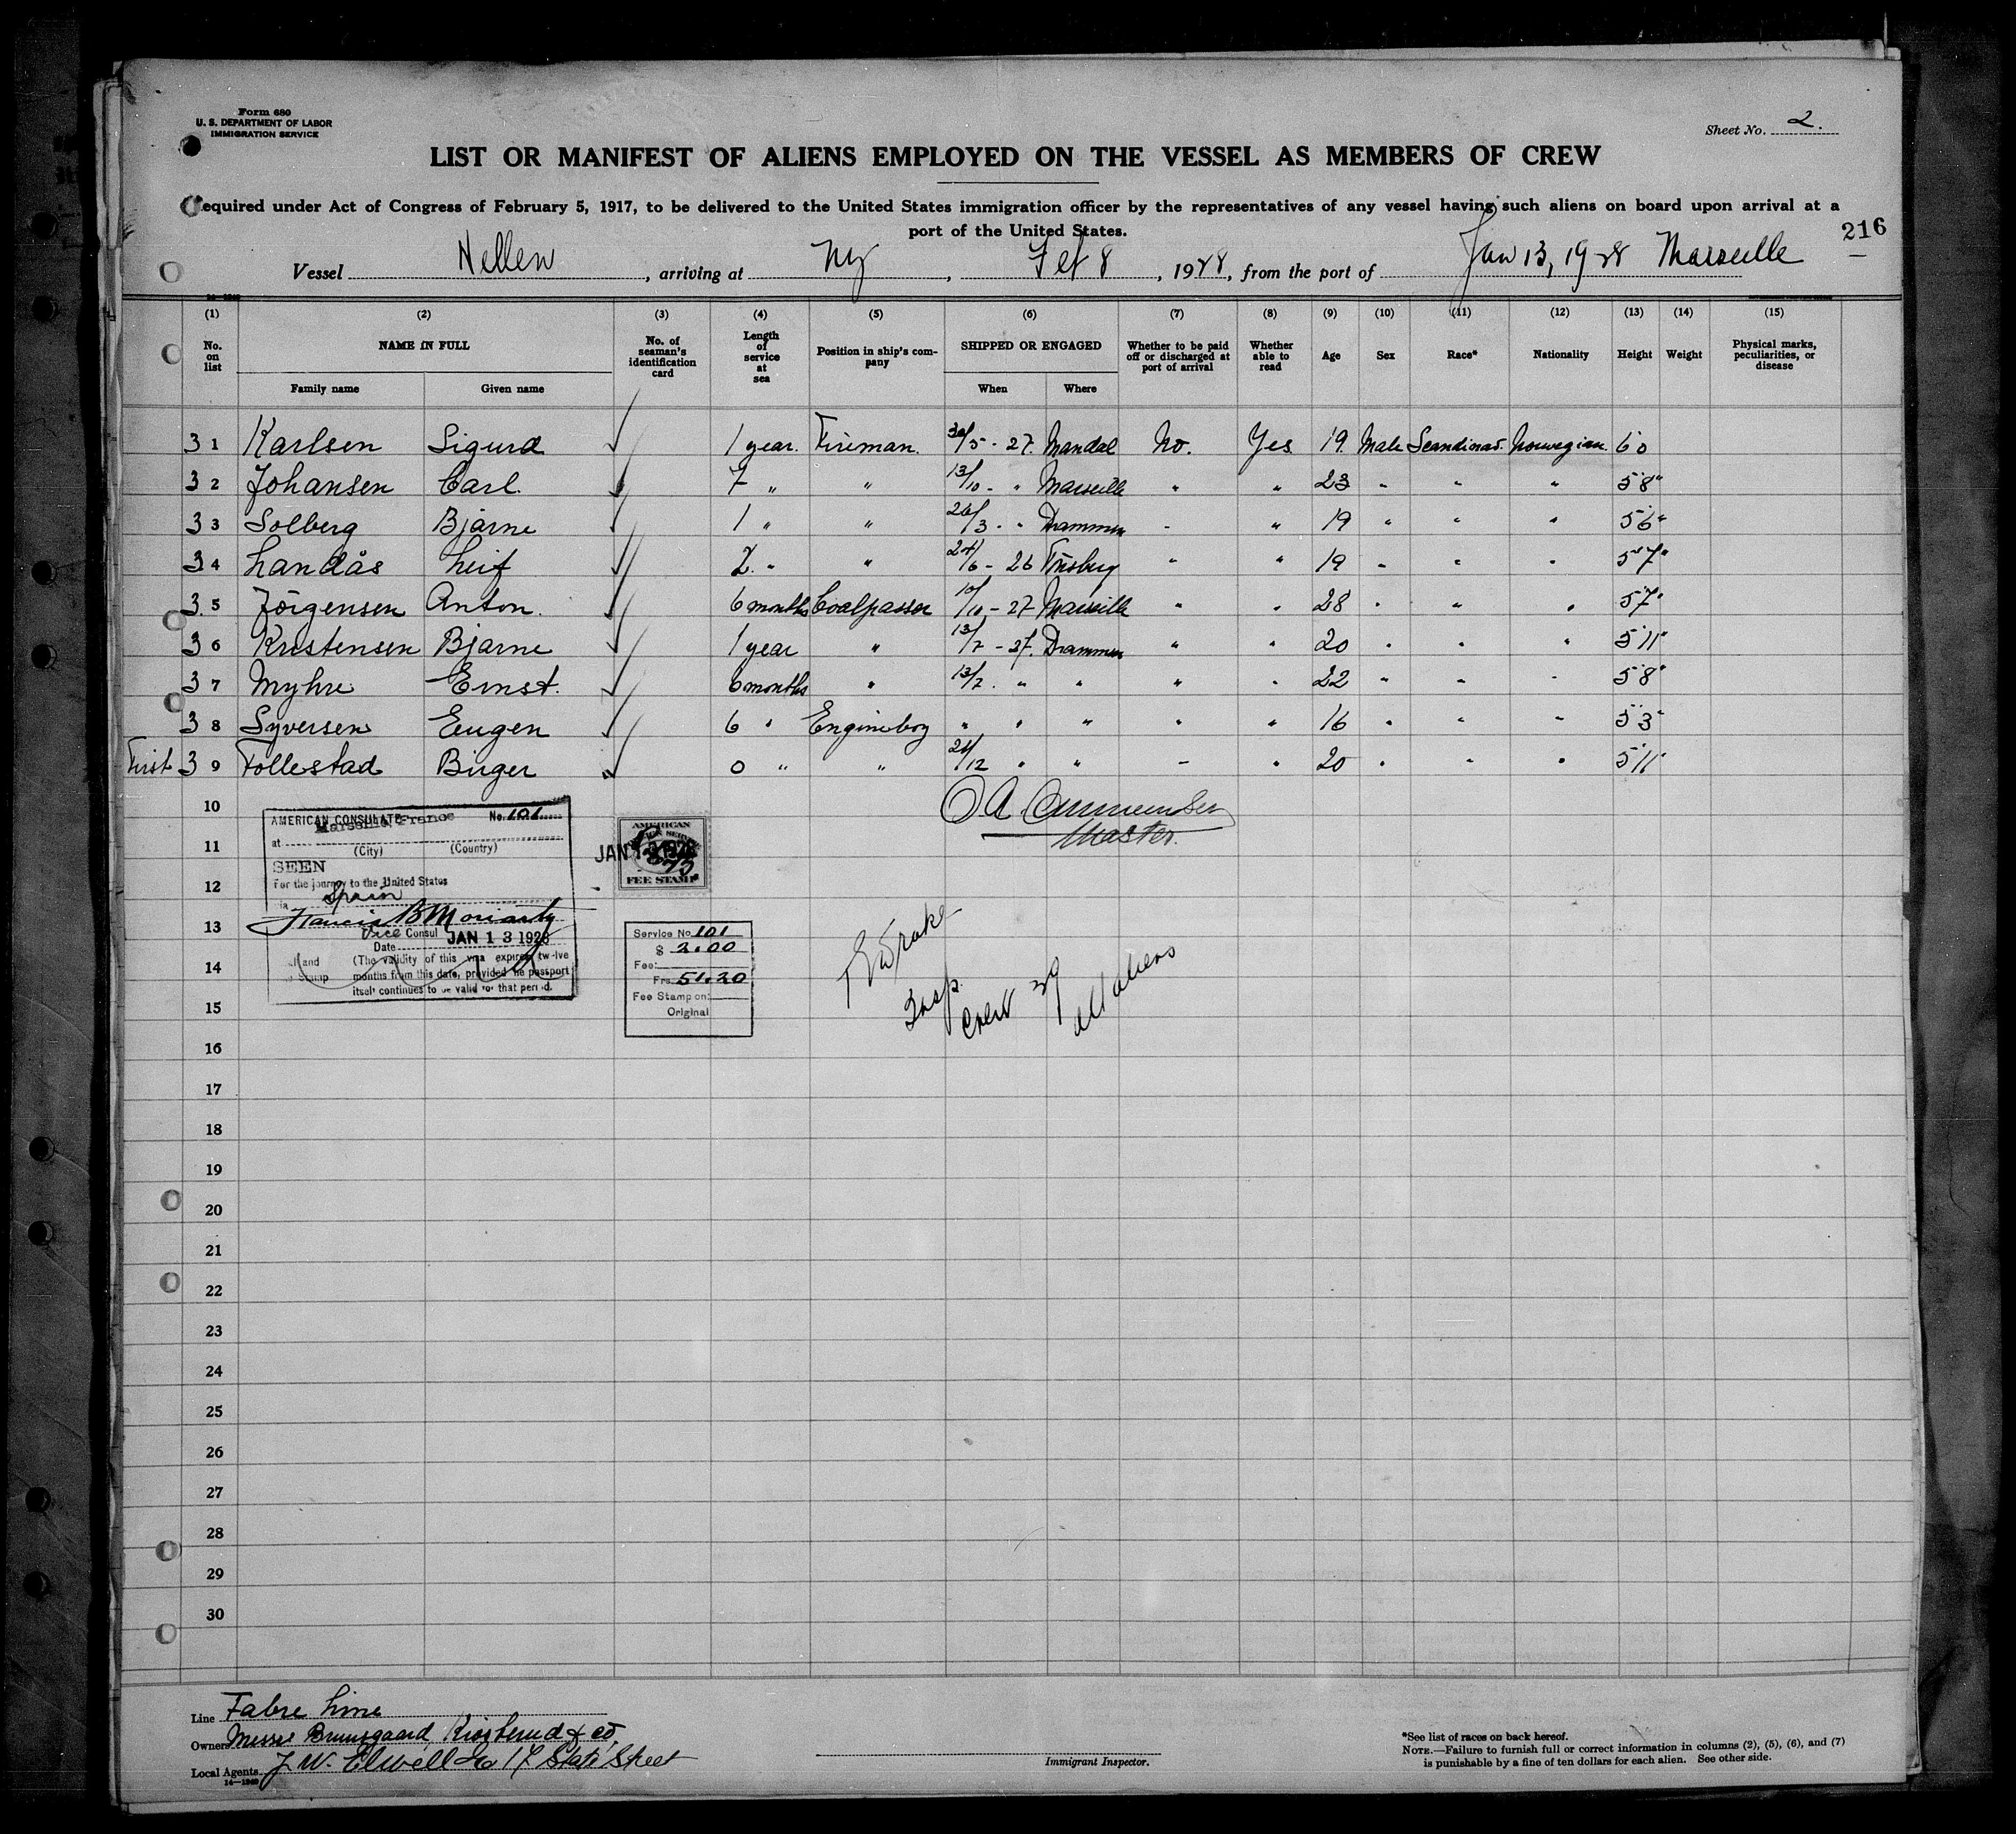 Form 680
U. S. DEPARTMENT OF LABOR
IMMIGRATION SERVICE
Sheet No. 2.
LIST OR MANIFEST OF ALIENS EMPLOYED ON THE VESSEL AS MEMBERS OF CREW
Required under Act of Congress of February 5, 1917, to be delivered to the United States immigration officer by the representatives of any vessel having such aliens on board upon arrival at a
port of the United States.
216
Vessel Hellen, arriving at NY, Feb 8, 1928, from the port of Jan 13, 1928 Marseille
(1) (2) (3) (4) (5) (6) (7) (8) (9) (10) (11) (12) (13) (14) (15)
No. on list NAME IN FULL No. of seaman's identification card Length of service at sea Position in ship's company SHIPPED OR ENGAGED Whether to be paid off or discharged at port of arrival Whether able to read Age Sex Race* Nationality Height Weight Physical marks, peculiarities, or disease
Family name Given name When Where
31 Karlsen Sigurd 1 year. Fireman. 30/5 - 27. Mandal No. Yes 19. Male Scandinav. Norwegian. 6 0
32 Johansen Carl. 7 " " 13/10 - " Marseille " " 23 " " " 5'8"
33 Solberg Bjarne 1 " " 26/3 - " Drammen - " 19 " " " 5'6"
34 Landås Leif 2. " " 24/6 - 26 Tönsberg " " 19 " " " 5'7"
35 Jörgensen Anton. 6 months Coalpasser 10/10 - 27 Marseille " " 28 " " " 5'7"
36 Kristensen Bjarne 1 year " 13/7 - 27. Drammen " " 20 " " " 5'11"
37 Myhre Ernst. 6 months " 13/7. " " " " 22 " " " 5'8"
38 Syversen Eugen 6 " Engineboy " " " " " 16 " " " 5'3"
First 39 Follestad Birger 0 " " 21/12 " " - " 20 " " " 5'11"
10
O A Ammundsen
Master.
AMERICAN CONSULATE No. 101
at Marseille, France
(City) (Country)
SEEN
For the journey to the United States
via Spain
Francis B Moriarty
Vice Consul
Date JAN 13 1928
(The validity of this visa expires twelve
months from this date, provided the passport
itself continues to be valid for that period.
AMERICAN
FEE STAMP
JAN 13 1928
Service No. 101
$ 2.00
Fee:
Frs. 51.20
Fee Stamp on
Original
11
12
13
14
15
Insp.
Crew 39
all aliens
16
17
18
19
20
21
22
23
24
25
26
27
28
29
30
Line Fabre Line
Owners Messrs Bruusgaard, Kiösterud & Co,
Local Agents J. W. Elwell & Co 17 State Street
14—1240
Immigrant Inspector.
*See list of races on back hereof.
NOTE.—Failure to furnish full or correct information in columns (2), (5), (6), and (7)
is punishable by a fine of ten dollars for each alien. See other side.